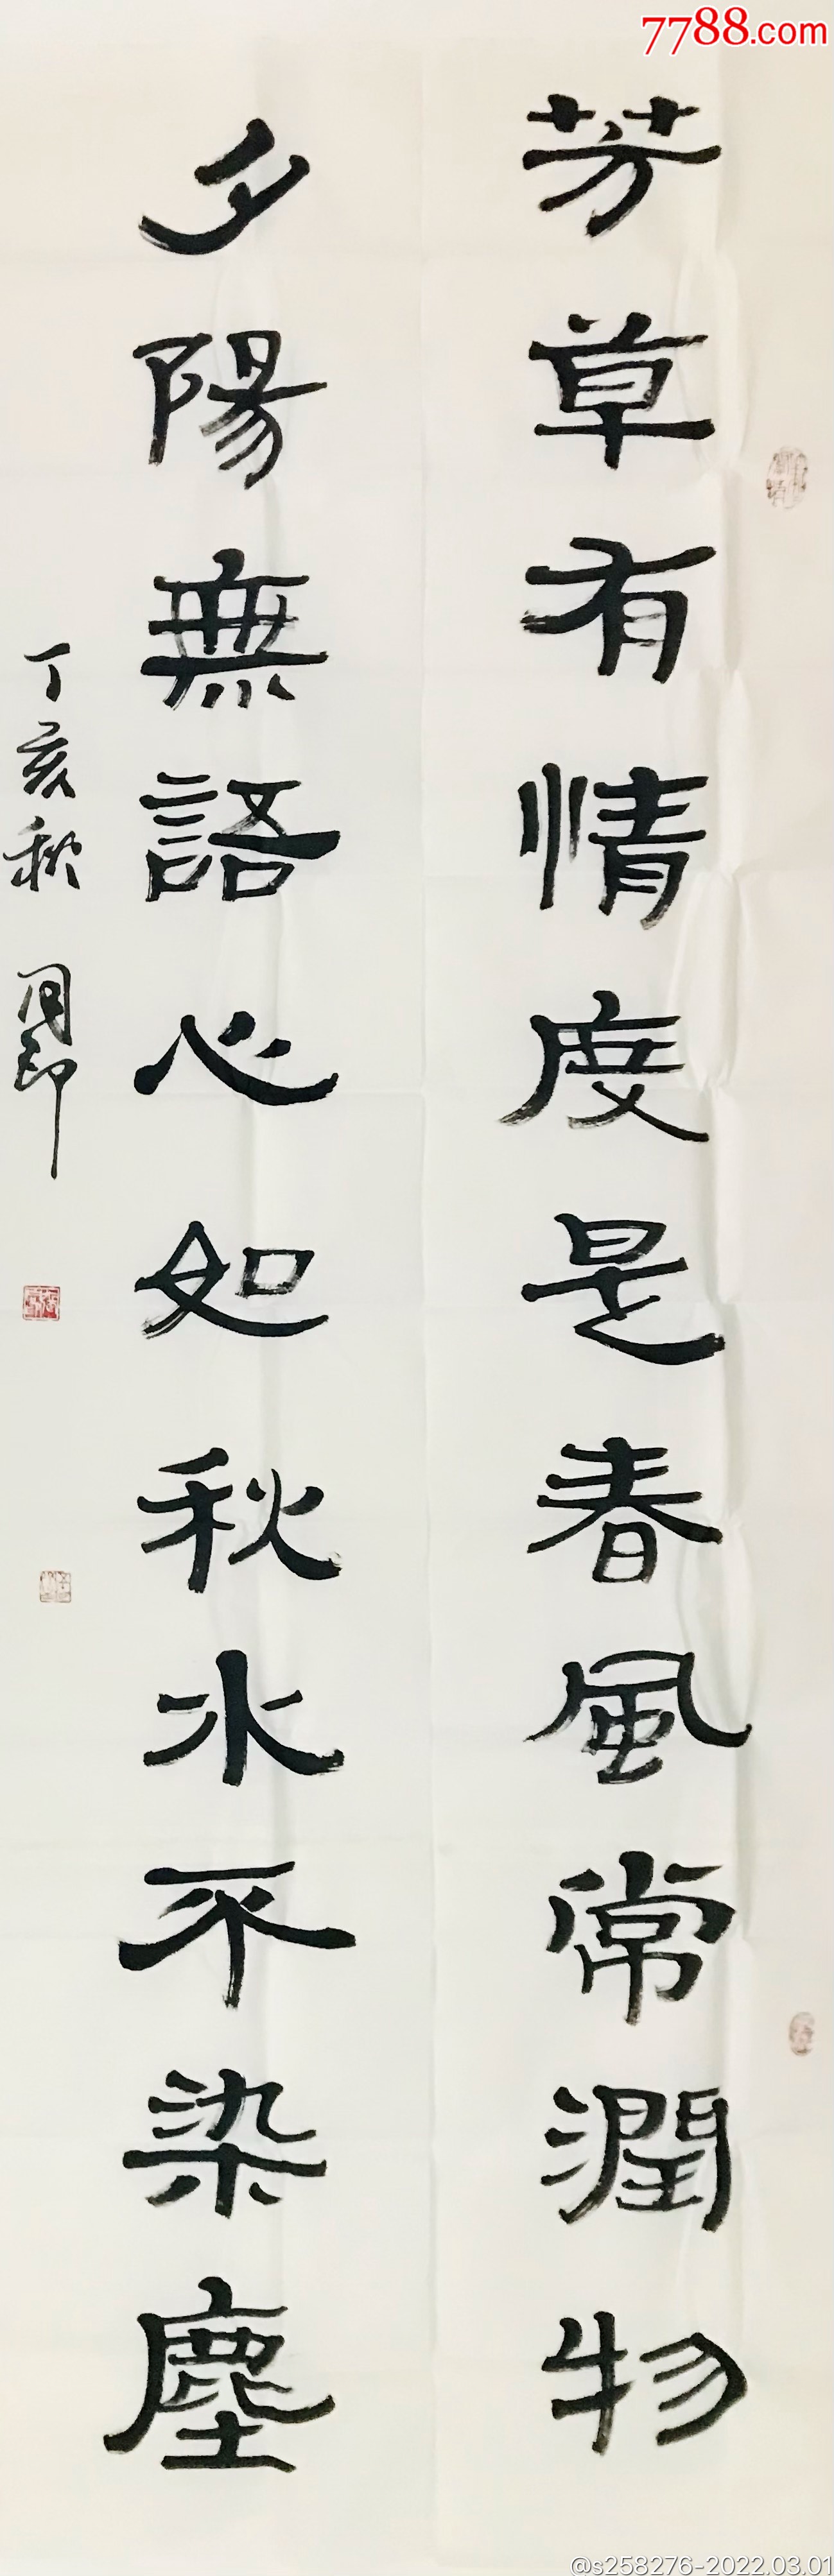 7788.com
芳草有情度是春風常潤物
夕陽無語心如秋水不染塵
丁亥秋
@s258276-2022.03.01